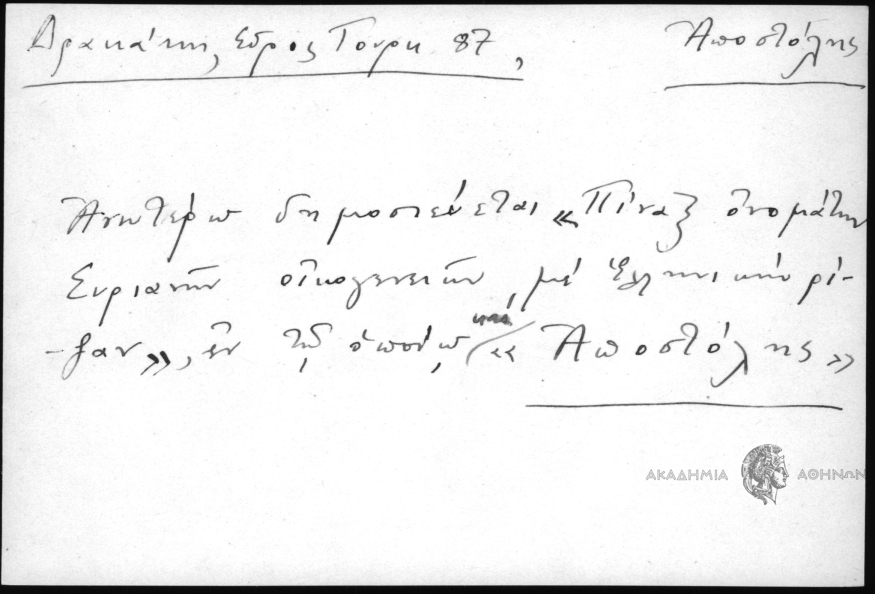 Δρακάκης, Σύρος Τουρκ 87, Ἀποστόλης
Ἀνωτέρω δημοσιεύεται «Πίναξ ὀνομάτων
Συριανῶν οἰκογενειῶν, μέ ἑλληνικήν ρί-
-ζαν», ἐν τῷ ὁποίῳ καί «Ἀποστόλης»
ΑΚΑΔΗΜΙΑ ΑΘΗΝΩΝ